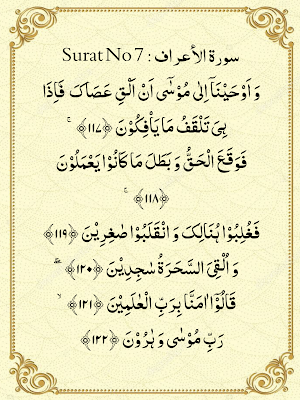 سورة الأعراف : Surat No 7
وَ اَوۡحَیۡنَاۤ اِلٰی مُوۡسٰۤی اَنۡ اَلۡقِ عَصَاکَ فَاِذَا
ہِیَ تَلۡقَفُ مَا یَاۡفِکُوۡنَ ﴿۱۱۷﴾ۚ
فَوَقَعَ الۡحَقُّ وَ بَطَلَ مَا کَانُوۡا یَعۡمَلُوۡنَ
﴿۱۱۸﴾ۚ
فَغُلِبُوۡا ہُنَالِکَ وَ انۡقَلَبُوۡا صٰغِرِیۡنَ ﴿۱۱۹﴾
وَ اُلۡقِیَ السَّحَرَۃُ سٰجِدِیۡنَ ﴿۱۲۰﴾ۚۖ
قَالُوۡۤا اٰمَنَّا بِرَبِّ الۡعٰلَمِیۡنَ ﴿۱۲۱﴾ۙ
رَبِّ مُوۡسٰی وَ ہٰرُوۡنَ ﴿۱۲۲﴾